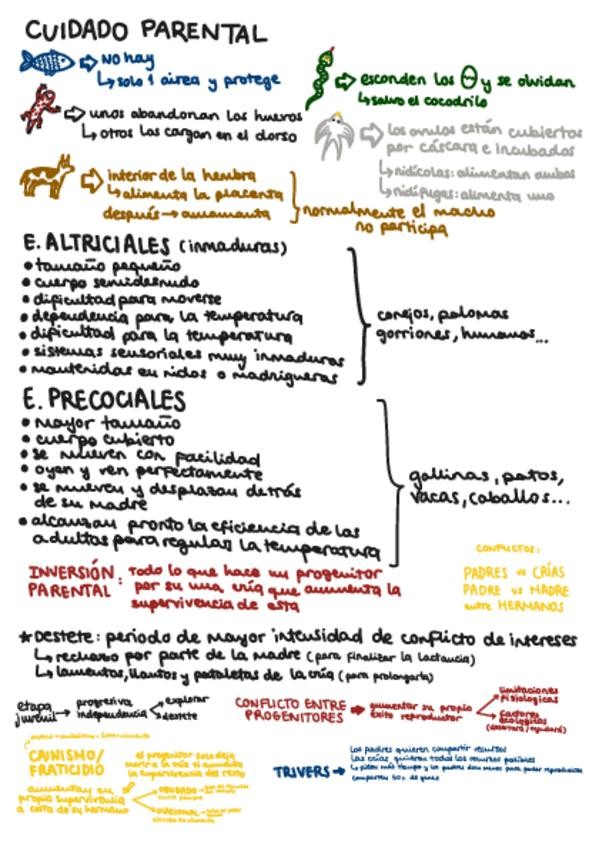 CUIDADO PARENTAL
⇨ NO hay
↳ solo 1 airea y protege
⇨ esconden los Θ y se olvidan
↳ salvo el cocodrilo
⇨ unos abandonan los huevos
↳ otros los cargan en el dorso
⇨ los ovulos están cubiertos
por cáscara e incubados
↳ nidícolas: alimentan ambos
↳ nidífugas: alimenta uno
⇨ interior de la hembra
↳ alimenta la placenta
después → amamanta
normalmente el macho
no participa
E. ALTRICIALES (inmaduras)
• tamaño pequeño
• cuerpo semidesnudo
• dificultad para moverse
• dependencia para la temperatura
• dificultad para la temperatura
• sistemas sensoriales muy inmaduros
• mantenidas en nidos o madrigueras
conejos, palomas
gorriones, humanos...
E. PRECOCIALES
• mayor tamaño
• cuerpo cubierto
• se mueven con facilidad
• oyen y ven perfectamente
• se mueven y desplazan detrás
de su madre
• alcanzan pronto la eficiencia de los
adultos para regular la temperatura
gallinas, patos,
vacas, caballos...
INVERSIÓN PARENTAL: todo lo que hace un progenitor
por su una cría que aumenta la
supervivencia de esta
CONFLICTOS:
PADRES vs CRÍAS
PADRE vs MADRE
entre HERMANOS
★ DESTETE: periodo de mayor intensidad de conflicto de intereses
↳ rechazo por parte de la madre (para finalizar la lactancia)
↳ lamentos, llantos y pataletas de la cría (para prolongarla)
etapa juvenil → progresiva independencia
→ explorar
→ destete
CONFLICTO ENTRE PROGENITORES → aumentar su propio
éxito reproductor
limitaciones
fisiológicas
factores
ecológicos
CAINISMO/
FRATICIDIO
el progenitor solo deja
morir a la cría si aumenta
la supervivencia del resto
aumentan su
propia supervivencia
a costa de su hermano
OBLIGADO
OCASIONAL
TRIVERS → los padres quieren compartir recursos
las crías, quieren todos los recursos posibles
comparten 50% de genes